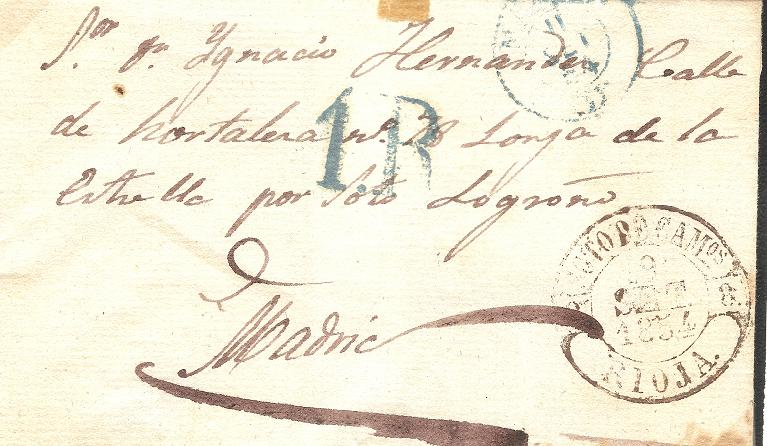 S.or D.n Ygnacio Hernandez Calle
de hortaleza n.o 78 Lonja de la
Estrella por Soto Logroño
Madrid
1.R
SOTO DE CAM.OS
SET
1854
RIOJA.